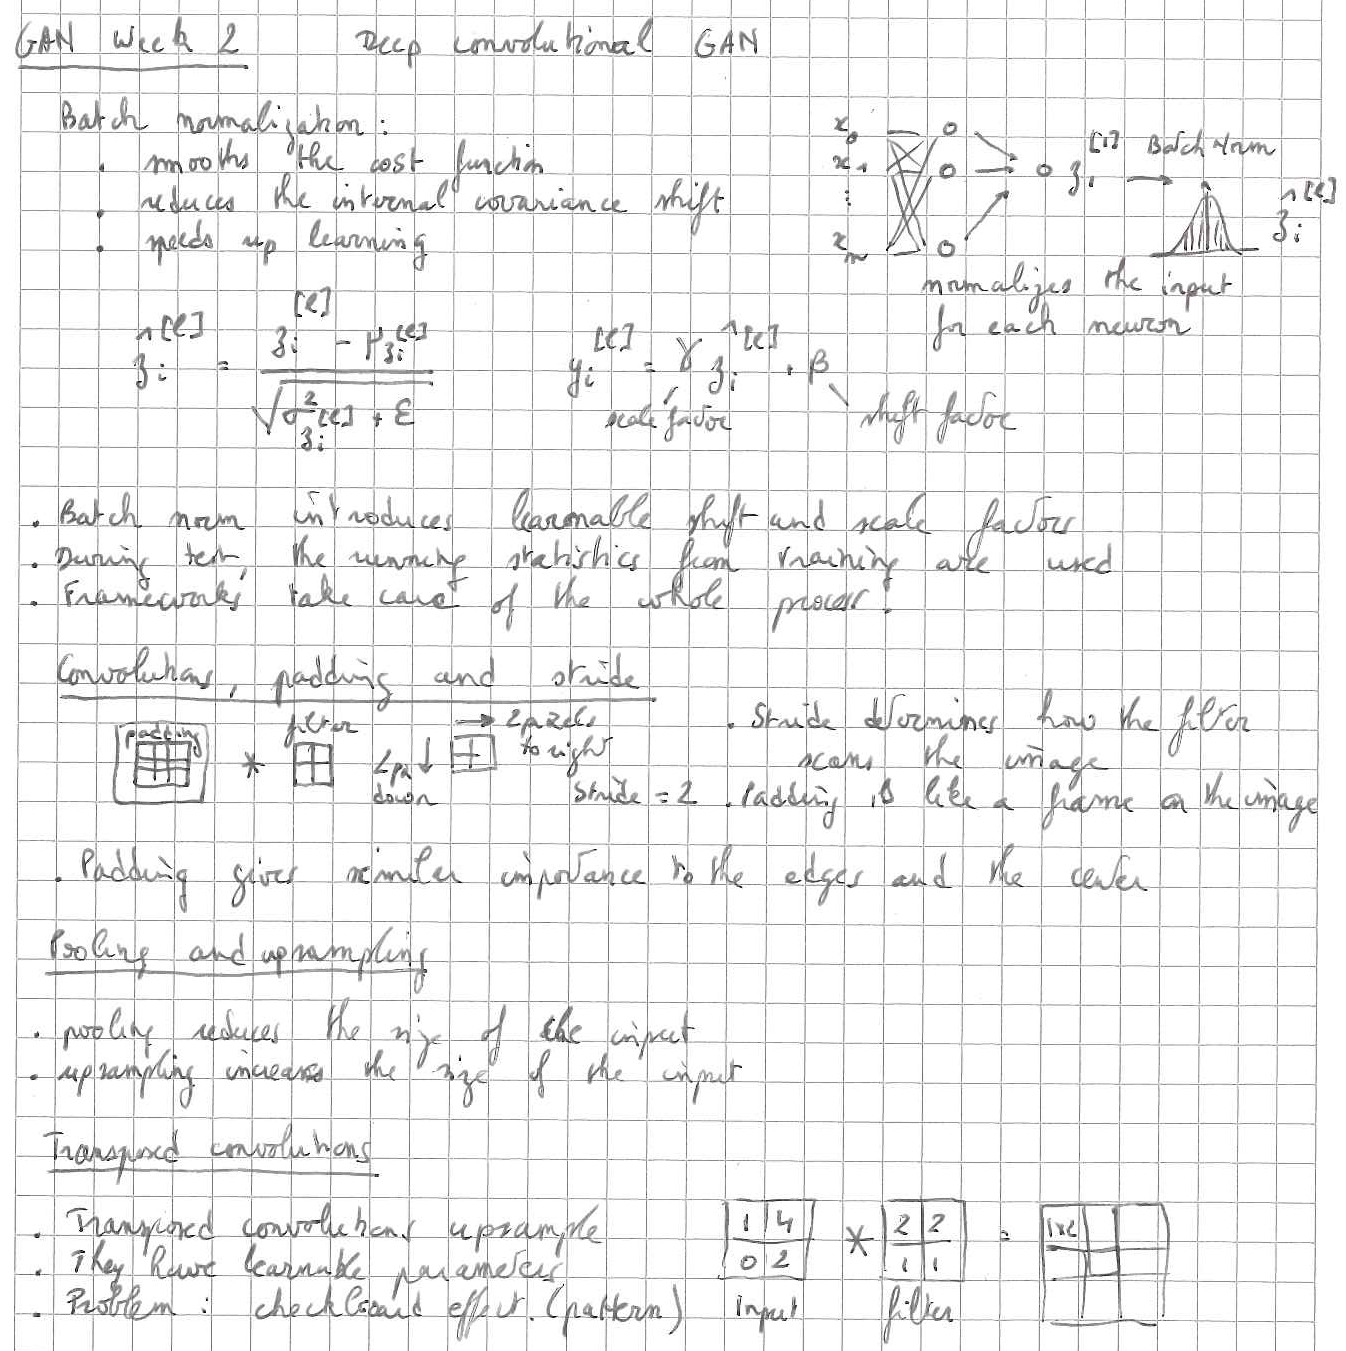 GAN Week 2 Deep convolutional GAN
Batch normalization:
. smooths the cost function
. reduces the internal covariance shift
. speeds up learning
x₀
x₁
⋮
xₙ
z₁^[1] Batch norm
ẑᵢ^[l]
normalizes the input
for each neuron
ẑᵢ^[l] = (zᵢ^[l] - μ_zᵢ^[l]) / √(σ²_zᵢ^[l] + ε)
yᵢ^[l] = γ ẑᵢ^[l] + β
scale factor
shift factor
. Batch norm introduces learnable shift and scale factors
. During test, the running statistics from training are used
. Frameworks take care of the whole process!
Convolutions, padding and stride
padding * filter
→ 2 pixels
to right
2px ↓
down
Stride = 2
. Stride determines how the filter
scans the image
. Padding is like a frame on the image
. Padding gives similar importance to the edges and the center
Pooling and upsampling
. pooling reduces the size of the input
. upsampling increases the size of the input
Transposed convolutions
. Transposed convolutions upsample
. They have learnable parameters
. Problem: checkboard effect. (pattern)
1 4 * 2 2 = 1x2
0 2 1 1
input filter